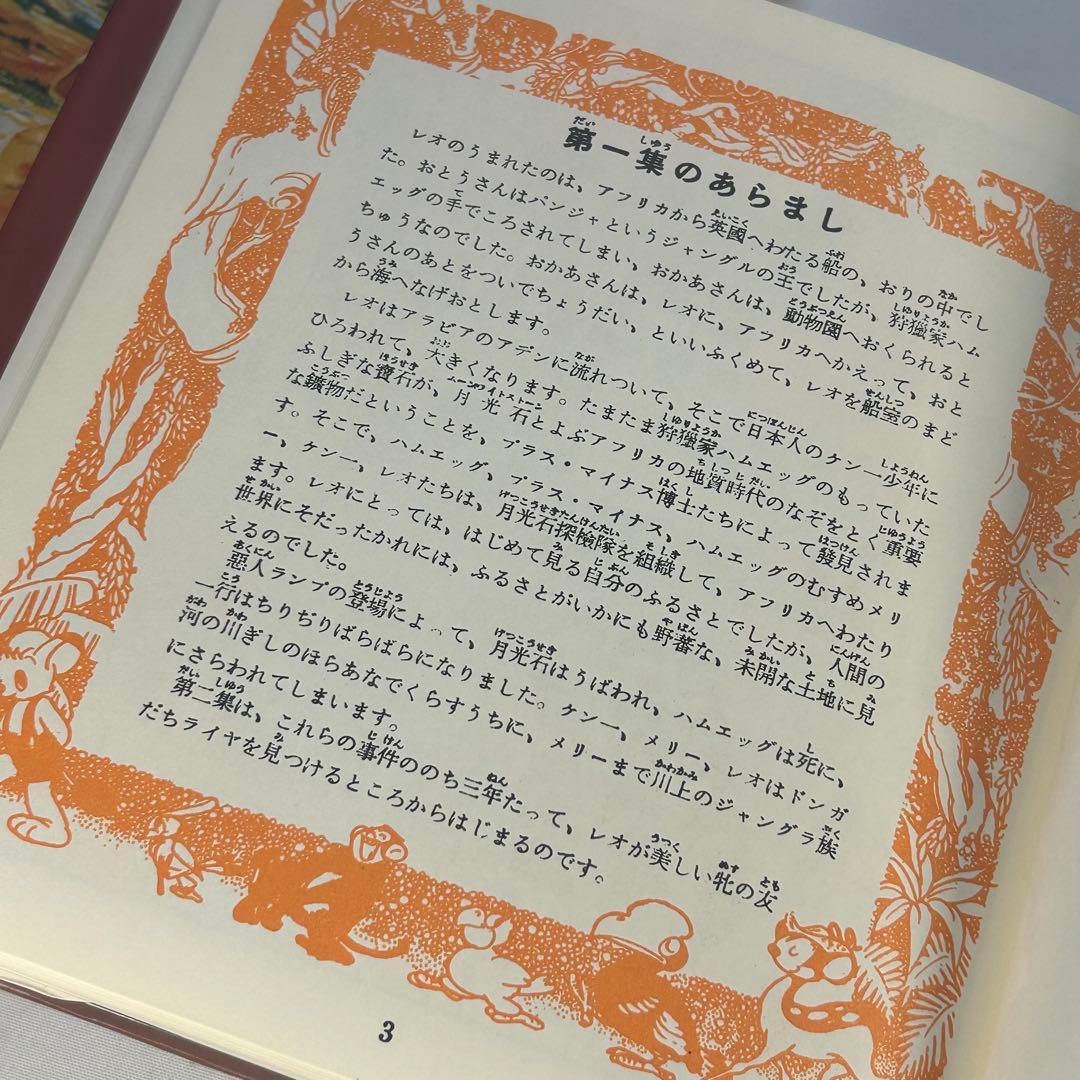 第一集のあらまし
レオのうまれたのは、アフリカから英國へわたる船の、おりの中でし
た。おとうさんはパンジャというジャングルの王でしたが、狩獵家ハム
エッグの手でころされてしまい、おかあさんは、動物園へおくられると
ちゅうなのでした。おかあさんは、レオに、アフリカへかえって、おと
うさんのあとをついでちょうだい、といいふくめて、レオを船室のまど
から海へなげおとします。
レオはアラビアのアデンに流れついて、そこで日本人のケン一少年に
ひろわれて、大きくなります。たまたま狩獵家ハムエッグのもっていた
ふしぎな寶石が、月光石とよぶアフリカの地質時代のなぞをとく重要
な鑛物だということを、プラス・マイナス博士たちによって發見されま
す。そこで、ハムエッグ、プラス・マイナス、ハムエッグのむすめメリ
ー、ケン一、レオたちは、月光石探檢隊を組織して、アフリカへわたり
ます。レオにとっては、はじめて見る自分のふるさとでしたが、人間の
世界にそだったかれには、ふるさとがいかにも野蕃な、未開な土地に見
えるのでした。
惡人ランプの登場によって、月光石はうばわれ、ハムエッグは死に、
一行はちりぢりばらばらになりました。ケン一、メリー、レオはドンガ
河の川ぎしのほらあなでくらすうちに、メリーまで川上のジャングラ族
にさらわれてしまいます。
第二集は、これらの事件ののち三年たって、レオが美しい牝の友
だちライヤを見つけるところからはじまるのです。
3